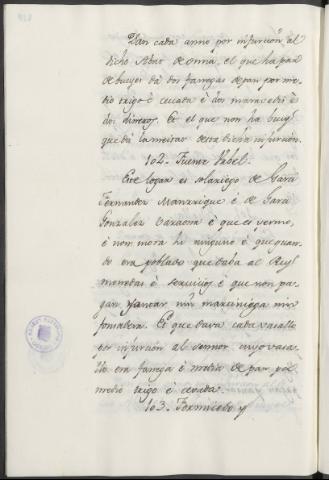 Dan cada anno por infurcion al
dicho Abat de onna, el que ha par
de bueyes da dos fanegas de pan por me-
dio trigo è cevada è dos maravedis è
dos dineros. Et el que non ha buey
que dà la meitat desta dicha infurcion.
102. Fuente Vrbel.
Este logar es solariego de Garci
Fernandez Manrrique è de Garci
Gonzalez Baraona è que es yermo,
è non mora hi ninguno è que quan-
do era poblado que daba al Rey
monedas è servicios è que non pa-
gan yantar nin martiniega nin
fonsadera. Et que dava cada vasallo
por infurcion al sennor cuyo vasa-
llo era fanega è media de pan por
medio trigo è cevada.
103. Formicedo y